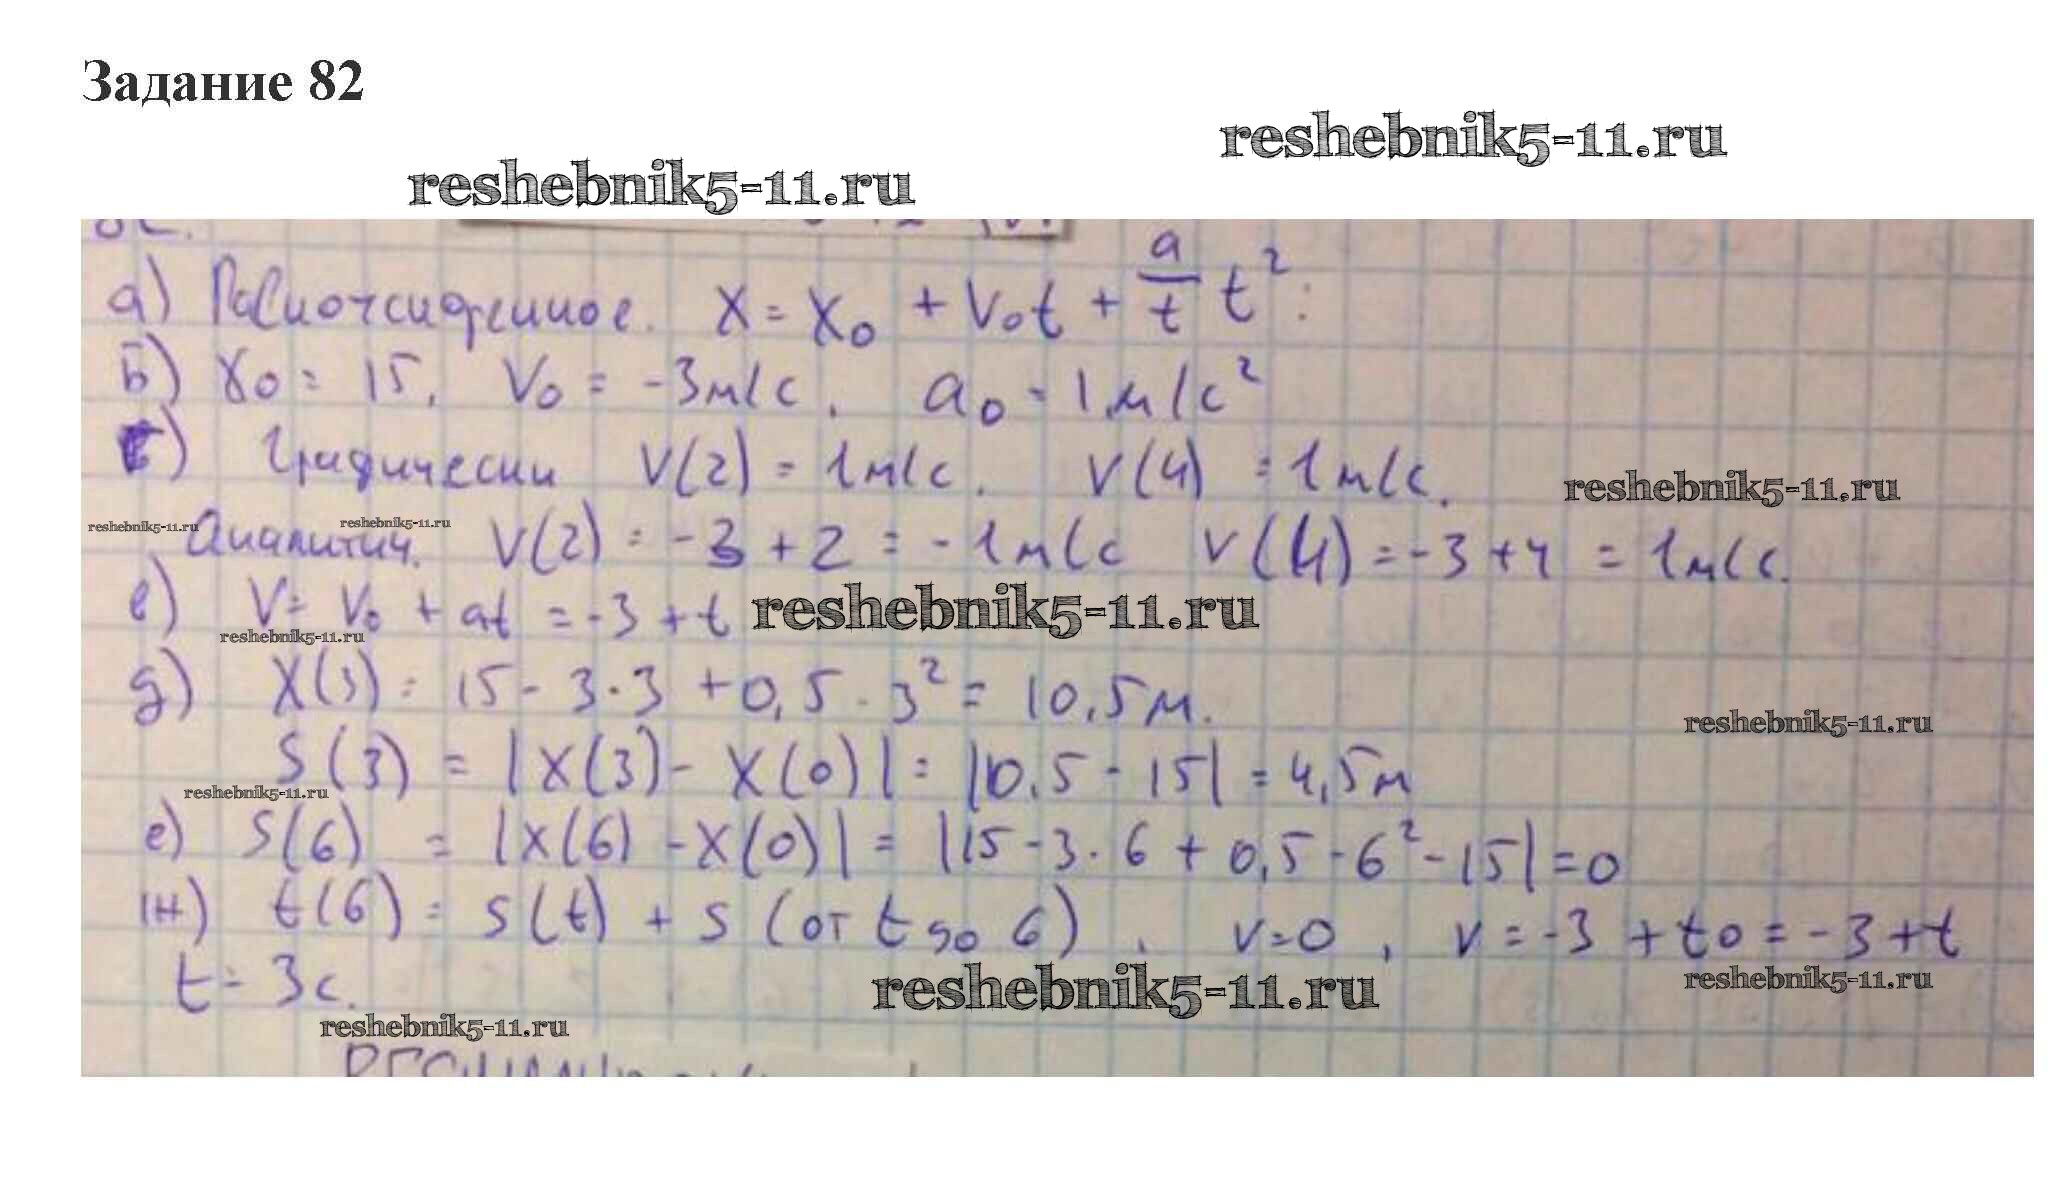 Задание 82
reshebnik5-11.ru
reshebnik5-11.ru
82.
а) Равноускоренное. x = x₀ + v₀t + a/t t² :
б) x₀ = 15, v₀ = -3м/с, a₀ = 1м/с²
с) Графически v(2) = 1м/с. v(4) = 1м/с.
reshebnik5-11.ru
reshebnik5-11.ru
reshebnik5-11.ru
Аналитич. v(2) = -3 + 2 = -1м/с v(4) = -3 + 4 = 1м/с.
в) v = v₀ + at = -3 + t
reshebnik5-11.ru
reshebnik5-11.ru
д) x(3) = 15 - 3·3 + 0,5·3² = 10,5м.
reshebnik5-11.ru
S(3) = |x(3) - x(0)| = |10,5 - 15| = 4,5м
reshebnik5-11.ru
е) S(6) = |x(6) - x(0)| = |15 - 3·6 + 0,5·6² - 15| = 0
н) t(6) = S(t) + S(от t до 6), v=0, v = -3 + t0 = -3 + t
t = 3с.
reshebnik5-11.ru
reshebnik5-11.ru
reshebnik5-11.ru